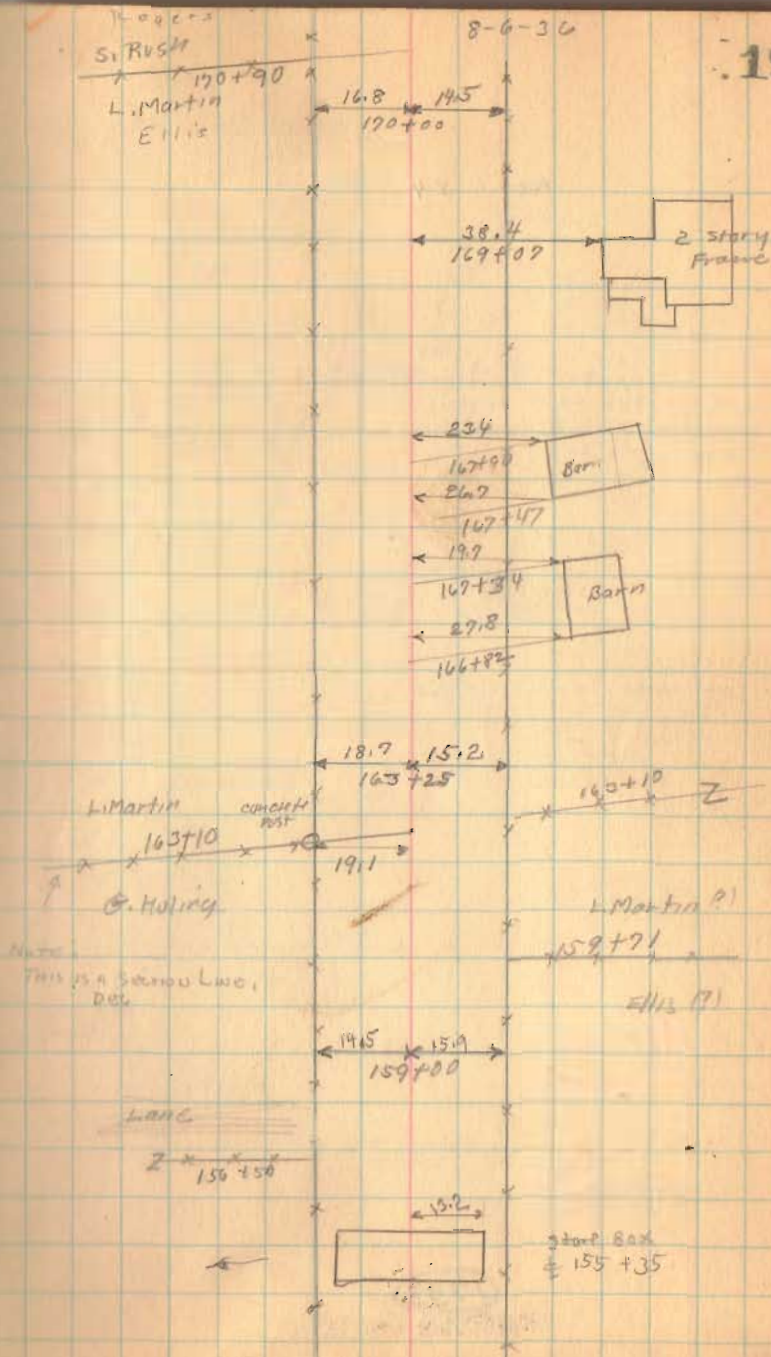 Rogers
8-6-36
S. Rush
170+90
L. Martin
Ellis
16.8 14.5
170+00
38.4
169+07
2 Story
Frame
23.4
167+90
Barn
26.7
167+47
19.7
167+34
Barn
27.8
166+82
18.7 15.2
163+25
163+10
L. Martin
concrete
post
163+10
19.1
G. Huling
L Martin (?)
159+71
Note:
This is a section Line,
Ellis (?)
14.5 15.9
159+00
Lane
156+50
13.2
Stone Box
155+35